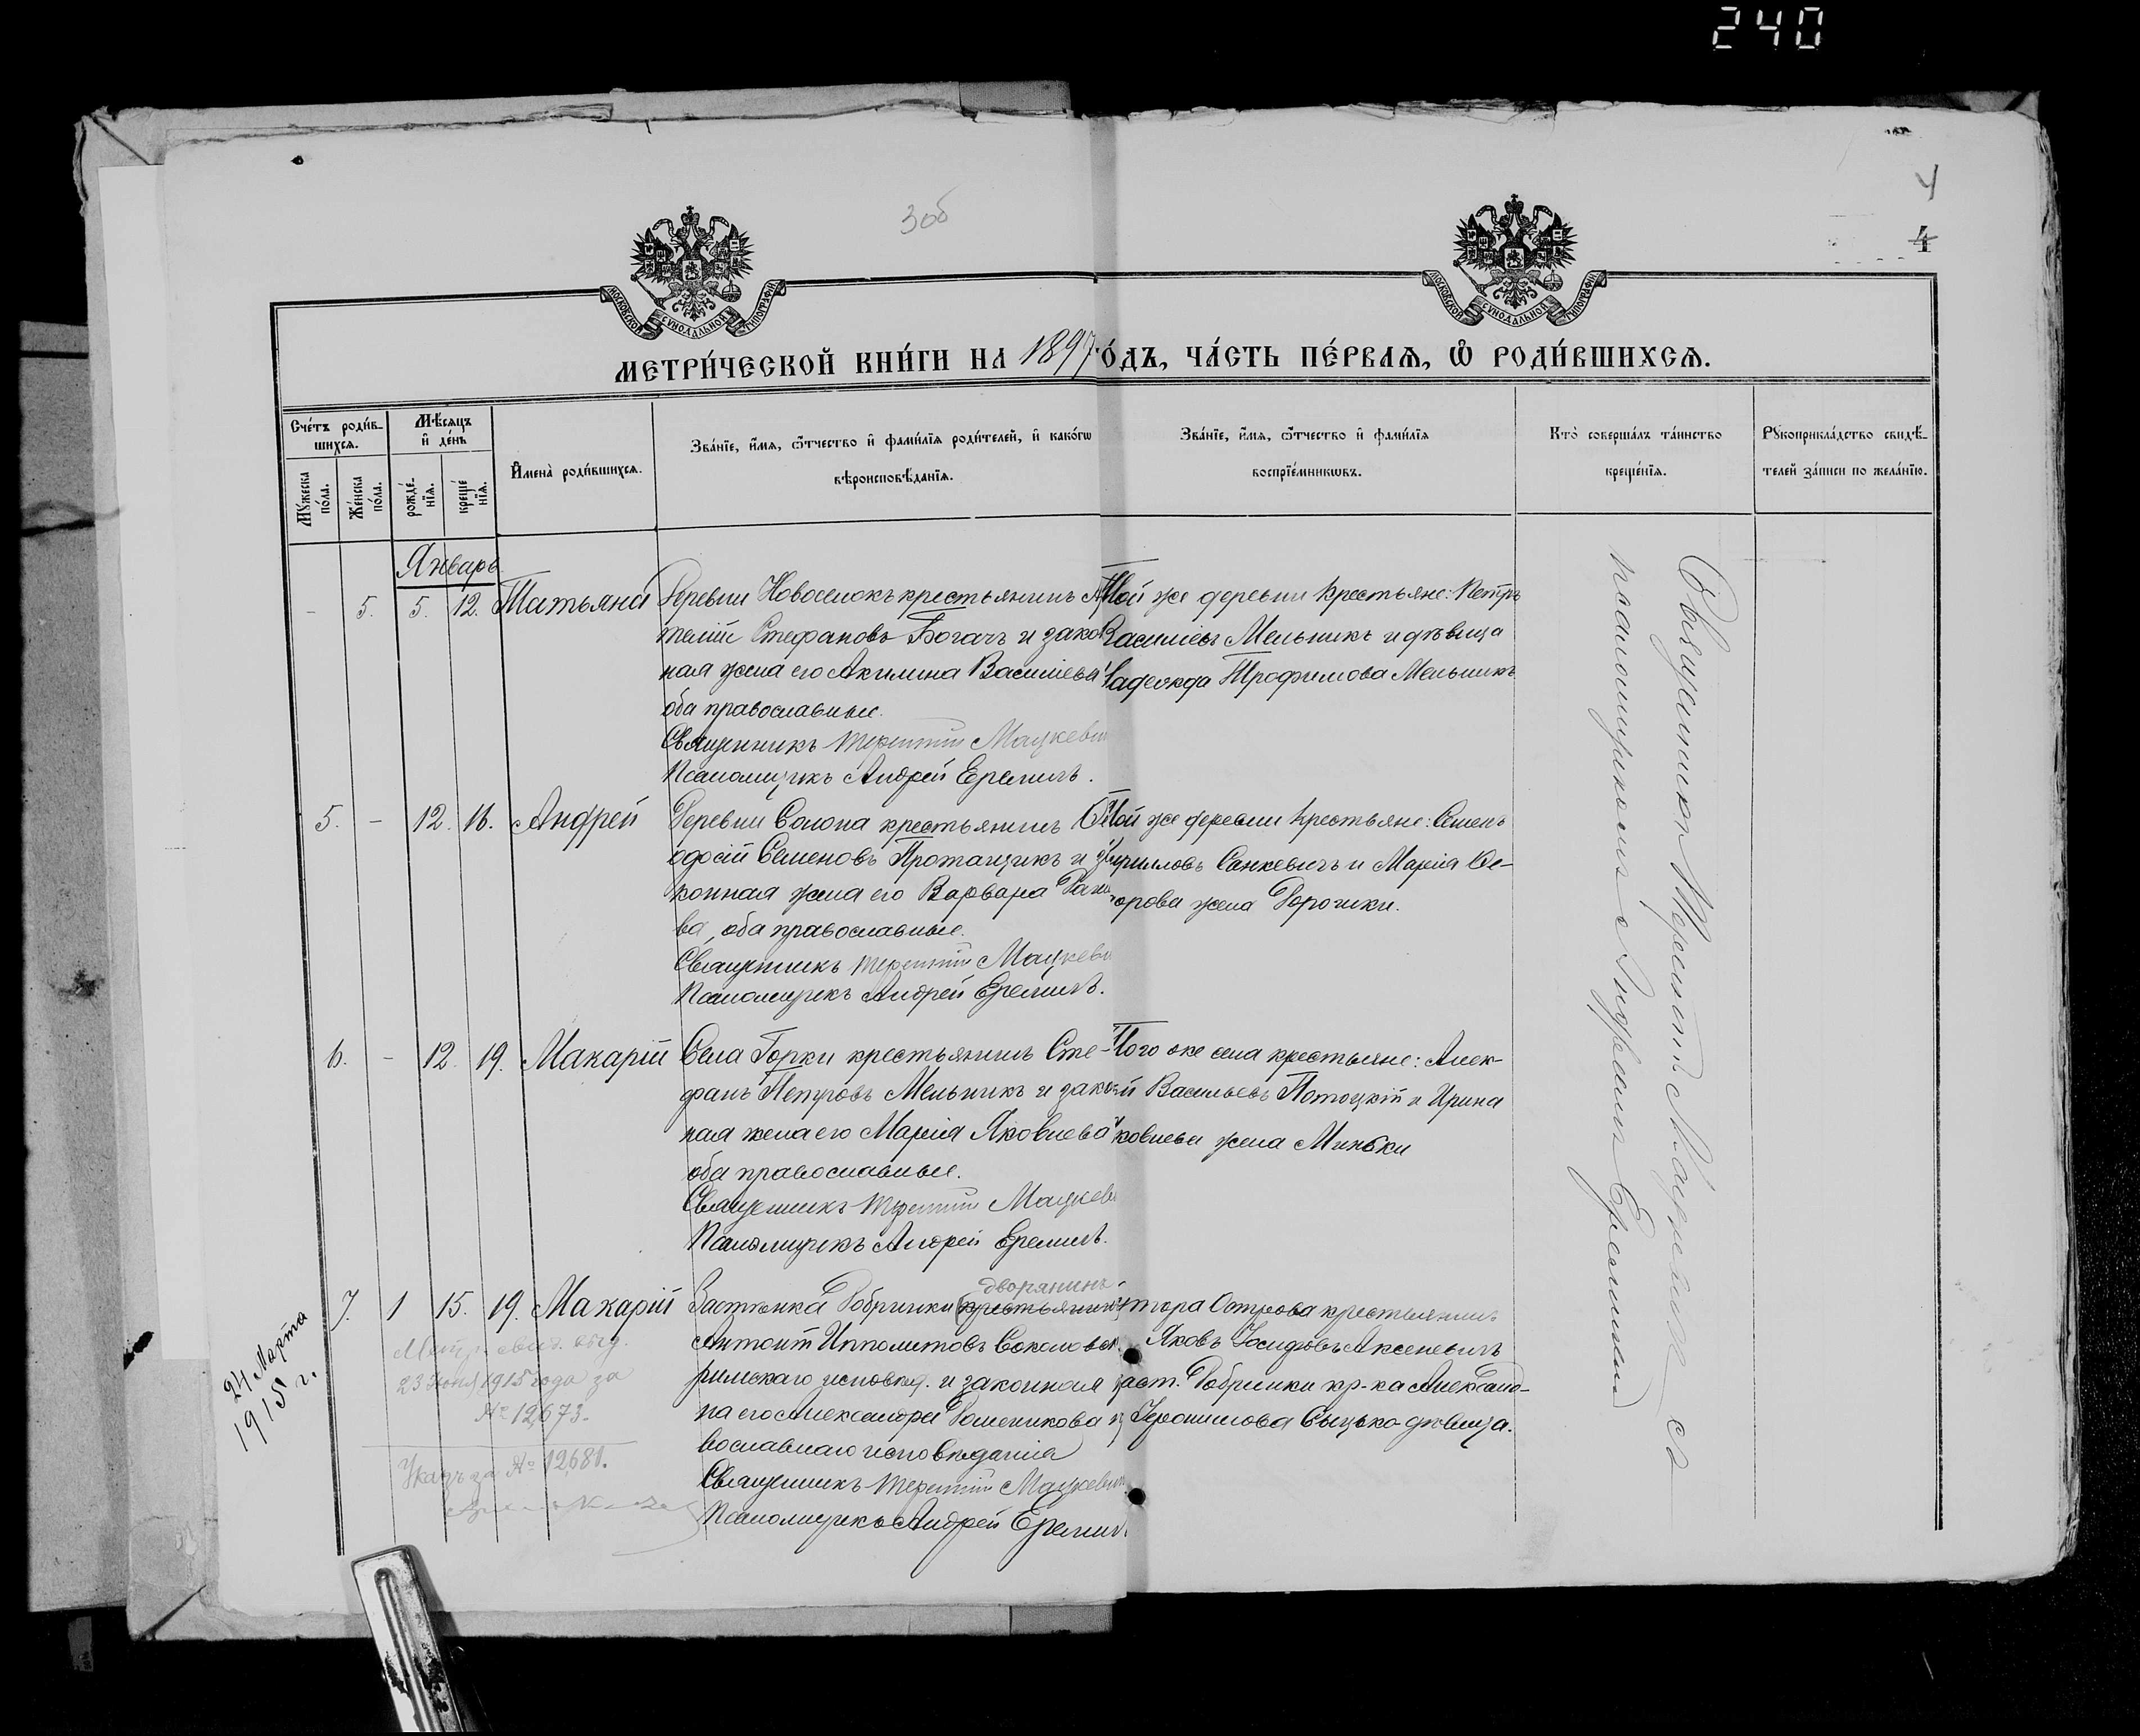 240
4
3об
4
МОСКОВСКОЙ СѴНОДАЛЬНОЙ ТИПОГРАФІИ
МОСКОВСКОЙ СѴНОДАЛЬНОЙ ТИПОГРАФІИ
МЕТРИ́ЧЕСКОЙ КНИ́ГИ НА 1897 ГО́ДЪ, ЧА́СТЬ ПЕ́РВАЯ, Ѡ РОДИ́ВШИХСЯ.
Сче́тъ роди́в-
шихся.
Мѣ́сяцъ
и де́нь
Му́жеска
по́ла.
Же́нска
по́ла.
рожде́-
нїя.
креще́
нїя.
Имена̀ роди́вшихся.
Зва́нїе, и́мя, ѻ́тчество и фами́лїя роди́телей, и како́гѡ
вѣроисповѣ́данїя.
Зва́нїе, и́мя, ѻ́тчество и фами́лїя
воспрїе́мникѡвъ.
Кто̀ соверша́лъ та́инство
креще́нїя.
Рꙋкоприкла́дство свидѣ́-
телей за́писи по жела́нїю.
Январь
- 5. 5. 12. Татьяна
Деревни Новоселокъ крестьянинъ
Стефановъ Богачъ и закон
ная жена его Акилина Василіева
оба православные.
Священникъ Терентій Мацкевич
Псаломщикъ Андрей Еремичъ.
Той же деревни крестьяне: Петръ
Василіевъ Мельникъ и дѣвица
Надежда Трофимова Мельникъ
5. - 12. 16. Андрей
Деревни Солона крестьянинъ Ѳе
одосій Семеновъ Протащикъ и за
конная жена его Варвара
ва, оба православные.
Священникъ Терентій Мацкеви
Псаломщикъ Андрей Еремичъ.
Той же деревни крестьяне: Семенъ
Кирилловъ Санкевичъ и Марія Ѳе-
дорова жена Дорошки.
6. - 12. 19. Макарій
Села Горки крестьянинъ Сте-
фанъ Петровъ Мельникъ и закон
ная жена его Марія Яковлева
оба православные.
Священникъ Терентій Мацкев
Псаломщикъ Андрей Еремичъ.
Того же села крестьяне: Алек-
сѣй Васильевъ Потоцкій и Ирина
Яковлева жена Миньки
7. 1 15. 19. Макарій
дворянинъ
Застѣнка Добринки крестьянинъ
Антонъ Ипполитовъ Соколовск
римскаго исповѣд. и законная же
на его Александра пра
вославнаго исповѣданія
Священникъ Терентій Мацкевич
Псаломщикъ Андрей Еремич
хутора Острова крестьянинъ
Яковъ Іосифовъ Аксеневичъ
заст. Добринки кр-ка Александ-
Іеронимова Сыцько дѣвица.
24 Марта
1915 г.
Метр. свид. выд.
23 Іюня 1915 года за
№ 12673.
Указъ за № 12681.
Священникъ Терентій Мацкевичъ съ
псаломщикомъ Андреемъ Еремичемъ